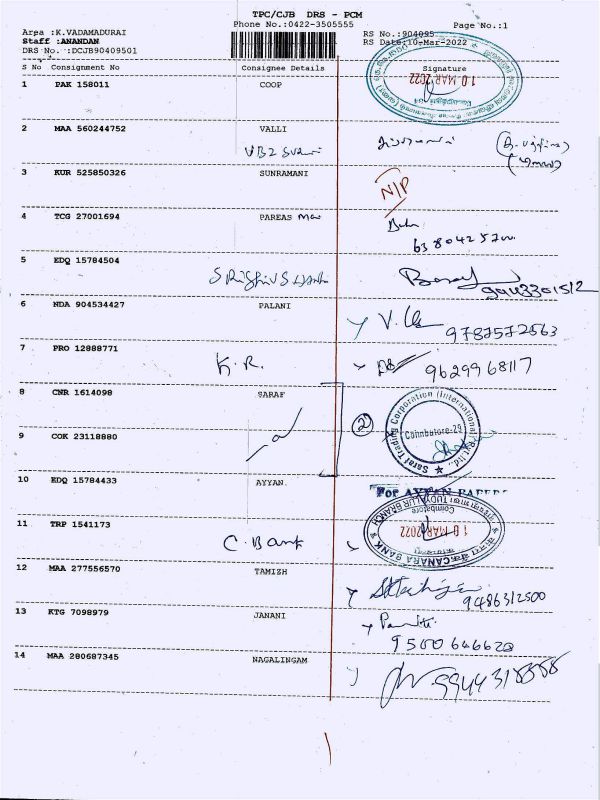 TPC/CJB DRS - PCM
Phone No.:0422-3505555
Page No.:1
Area :K.VADAMADURAI
RS No.:904095
Staff :ANANDAN
RS Date:10-Mar-2022
DRS No.:DCJB90409501
S No Consignment No Consignee Details Signature
10 MAR 2022
1 PAK 158011 COOP
2 MAA 560244752 VALLI
3 KUR 525850326 SUNRAMANI
N/P
4 TCG 27001694 PAREAS
5 EDQ 15784504
9943301512
6 NDA 904534427 PALANI
9787572563
7 PRO 12888771
K.R.
9629968117
8 CNR 1614098 SARAF
2
Saraf Trading Corporation (International) Pvt. Ltd.,
Coimbatore-29
9 COK 23118880
10 EDQ 15784433 AYYAN.
For AYYAN PAPERS
11 TRP 1541173
C. Bank
CANARA BANK
10 MAR 2022
Coimbatore
12 MAA 277556570 TAMIZH
9486312500
13 KTG 7098979 JANANI
9500646620
14 MAA 280687345 NAGALINGAM